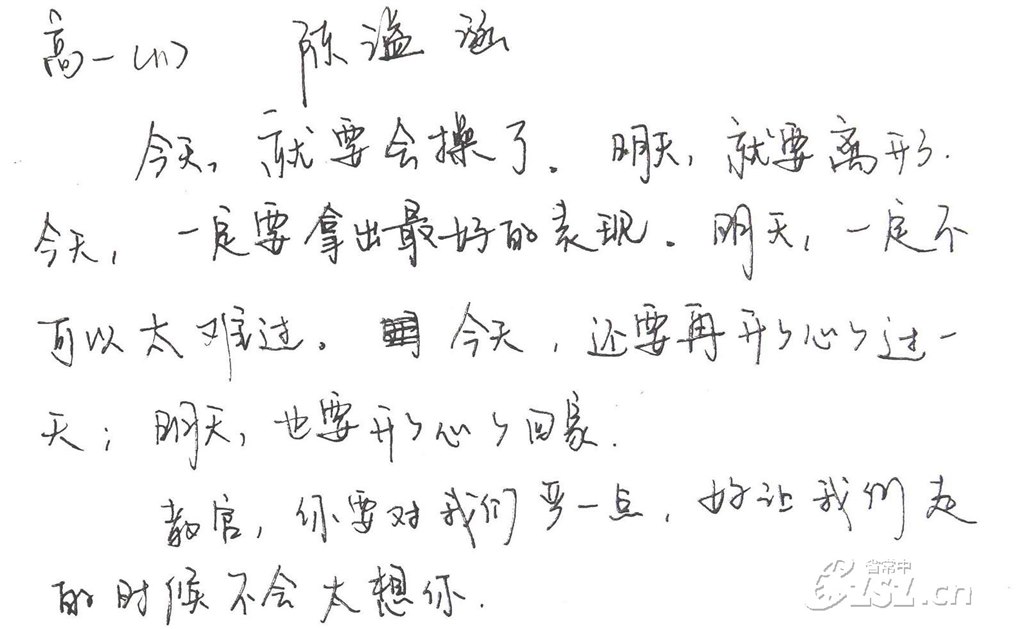 高一(11) 陈溢涵
今天,就要会操了。明天,就要离开了.
今天,一定要拿出最好的表现。明天,一定不
可以太难过。今天,还要再开々心々过一
天;明天,也要开々心々回家.
教官,你要对我们严一点,好让我们走
的时候不会太想你.
省常中
CSZ.cn